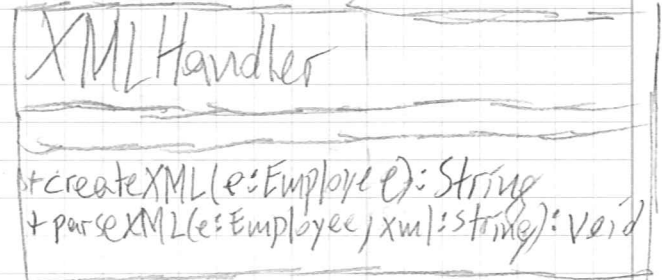 XMLHandler
+createXML(e:Employee):String
+parseXML(e:Employee,xml:string):void